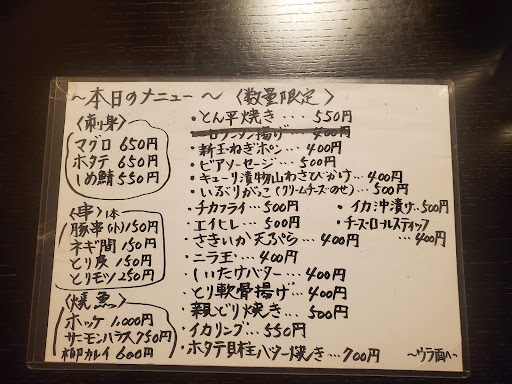 ～本日のメニュー～〈数量限定〉
〈刺身〉
マグロ 650円
ホタテ 650円
しめ鯖 550円
〈串〉1本
豚串(小)150円
ネギ間 150円
とり皮 150円
とりモツ 250円
〈焼魚〉
ホッケ 1,000円
サーモンハラス 750円
柳カレイ 600円
・とん平焼き… 550円
・新玉ねぎポン… 400円
・ビアソーセージ… 500円
・キューリ漬物山わさびがけ… 400円
・いぶりがっこ(クリームチーズのせ)… 500円
・チカフライ… 500円
・イカ沖漬け… 500円
・エイヒレ… 500円
・チーズロールスティック… 400円
・さきいか天ぷら… 400円
・ニラ玉… 400円
・しいたけバター… 400円
・とり軟骨揚げ… 400円
・親どり焼き… 500円
・イカリング… 550円
・ホタテ貝柱バター焼き… 700円
～ウラ面へ～